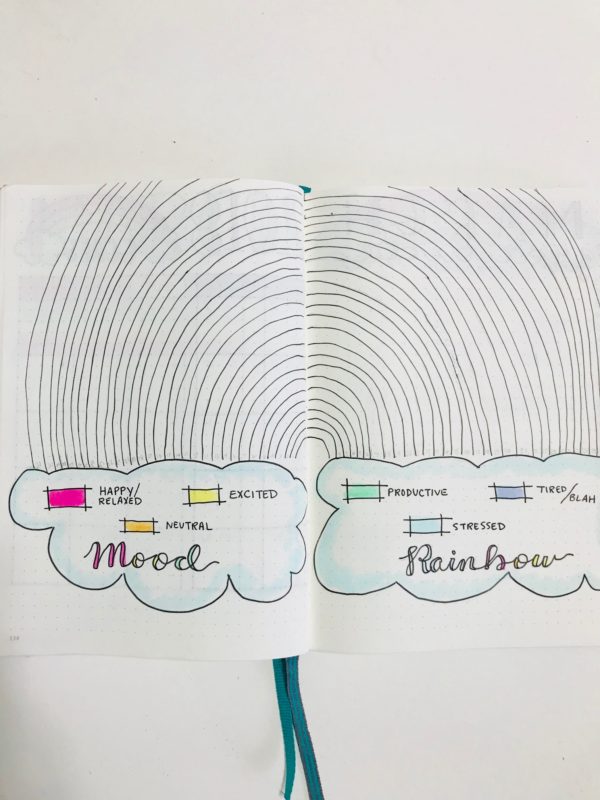 HAPPY/
RELAXED
EXCITED
NEUTRAL
Mood
PRODUCTIVE
TIRED/
BLAH
STRESSED
Rainbow